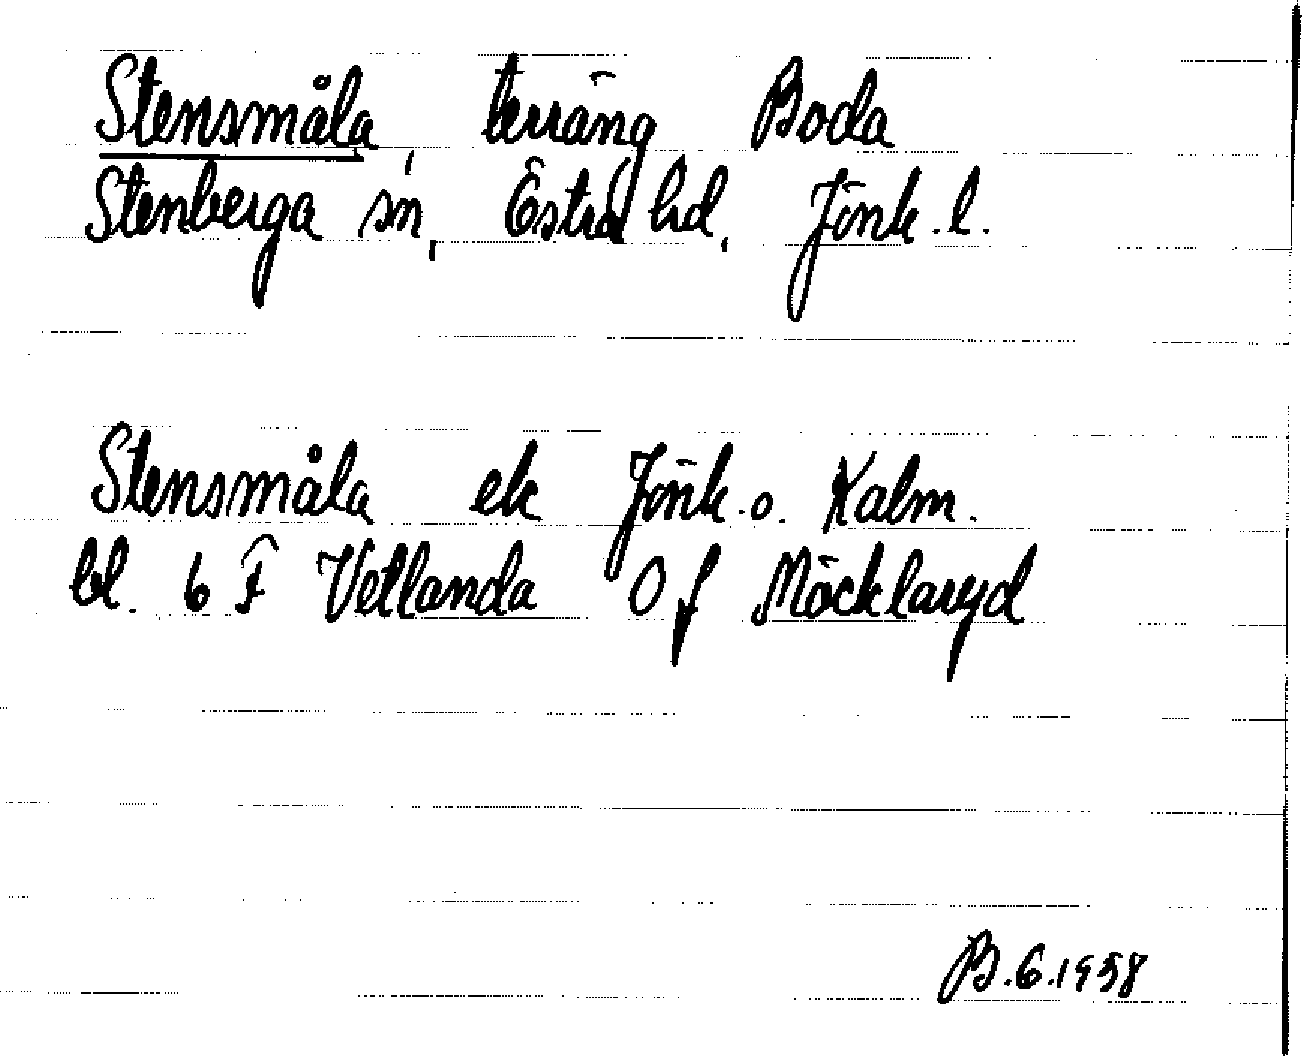 Stensmåla, terräng Boda
Stenberga sn, Östra hd, Jönk.l.
Stensmåla ek Jönk.o. Kalm.
bl. 6 F Vetlanda 0 f Möcklaryd
B.6.1958